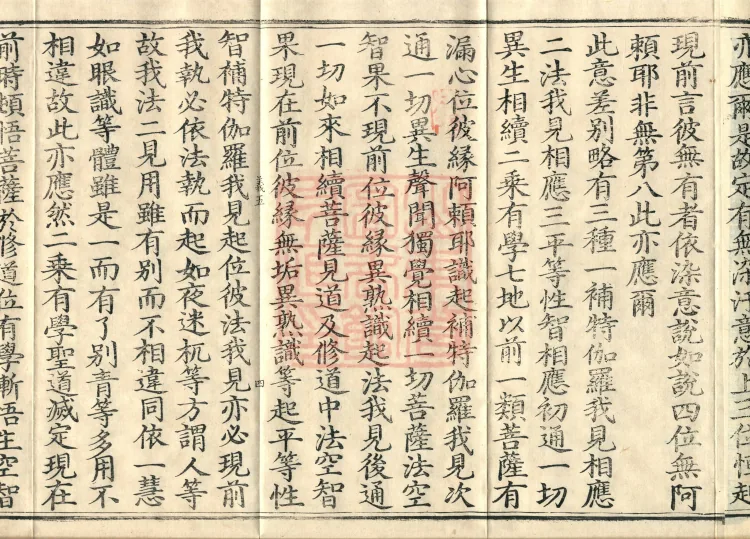 亦應爾是故定有無染污意於上三位恒起
現前言彼無有者依染意說如說四位無阿
賴耶非無第八此亦應爾
此意差別略有三種一補特伽羅我見相應
二法我見相應三平等性智相應初通一切
異生相續二乘有學七地以前一類菩薩有
漏心位彼緣阿賴耶識起補特伽羅我見次
通一切異生聲聞獨覺相續一切菩薩法空
智果不現前位彼緣異熟識起法我見後通
一切如來相續菩薩見道及修道中法空智
果現在前位彼緣無垢異熟識等起平等性
義五
四
智補特伽羅我見起位彼法我見亦必現前
我執必依法執而起如夜迷杌等方謂人等
故我法二見用雖有別而不相違同依一慧
如眼識等體雖是一而有了別青等多用不
相違故此亦應然二乘有學聖道滅定現在
前時頓悟菩薩於修道位有學漸悟生空智